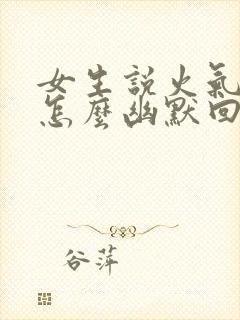 女生説火氣
怎麼幽默回
谷萍